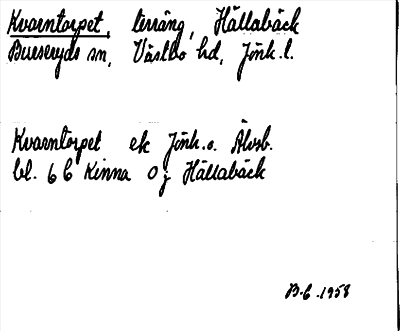 Kvarntorpet, terräng, Hällabäck
Bureseryds sn, Västbo hd, Jönk.l.
Kvarntorpet ek Jönk.o. Älvsb.
bl. 6 6 Kinna Oj Hällabäck
B-G.1958